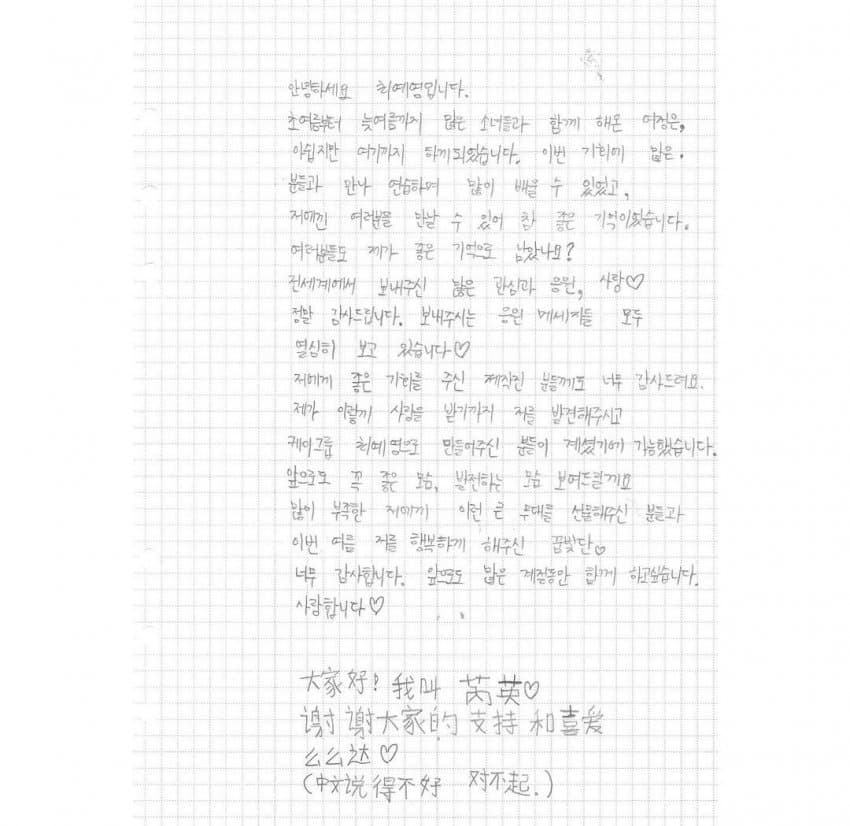 안녕하세요 최예영입니다.
초여름부터 늦여름까지 많은 소녀들과 함께 해온 여정은,
아쉽지만 여기까지 하게되었습니다. 이번 기회에 많은.
분들과 만나 연습하며 많이 배울 수 있었고,
저에겐 여러분을 만날 수 있어 참 좋은 기억이었습니다.
여러분들도 제가 좋은 기억으로 남았나요?
전세계에서 보내주신 많은 관심과 응원, 사랑♡
정말 감사드립니다. 보내주시는 응원 메세지들 모두
열심히 보고 있습니다♡
저에게 좋은 기회를 주신 제작진 분들께도 너무 감사드려요.
제가 이렇게 사랑을 받기까지 저를 발견해주시고
케이그룹 최예영으로 만들어주신 분들이 계셨기에 가능했습니다.
앞으로도 꼭 좋은 모습, 발전하는 모습 보여드릴게요
많이 부족한 저에게 이런 큰 무대를 선물해주신 분들과
이번 여름 저를 행복하게 해주신 꿈빛단♡
너무 감사합니다. 앞으로도 많은 계절동안 함께 하고싶습니다.
사랑합니다♡
大家好! 我叫 芮英♡
谢谢大家的支持和喜爱
么么达♡
(中文说得不好 对不起.)